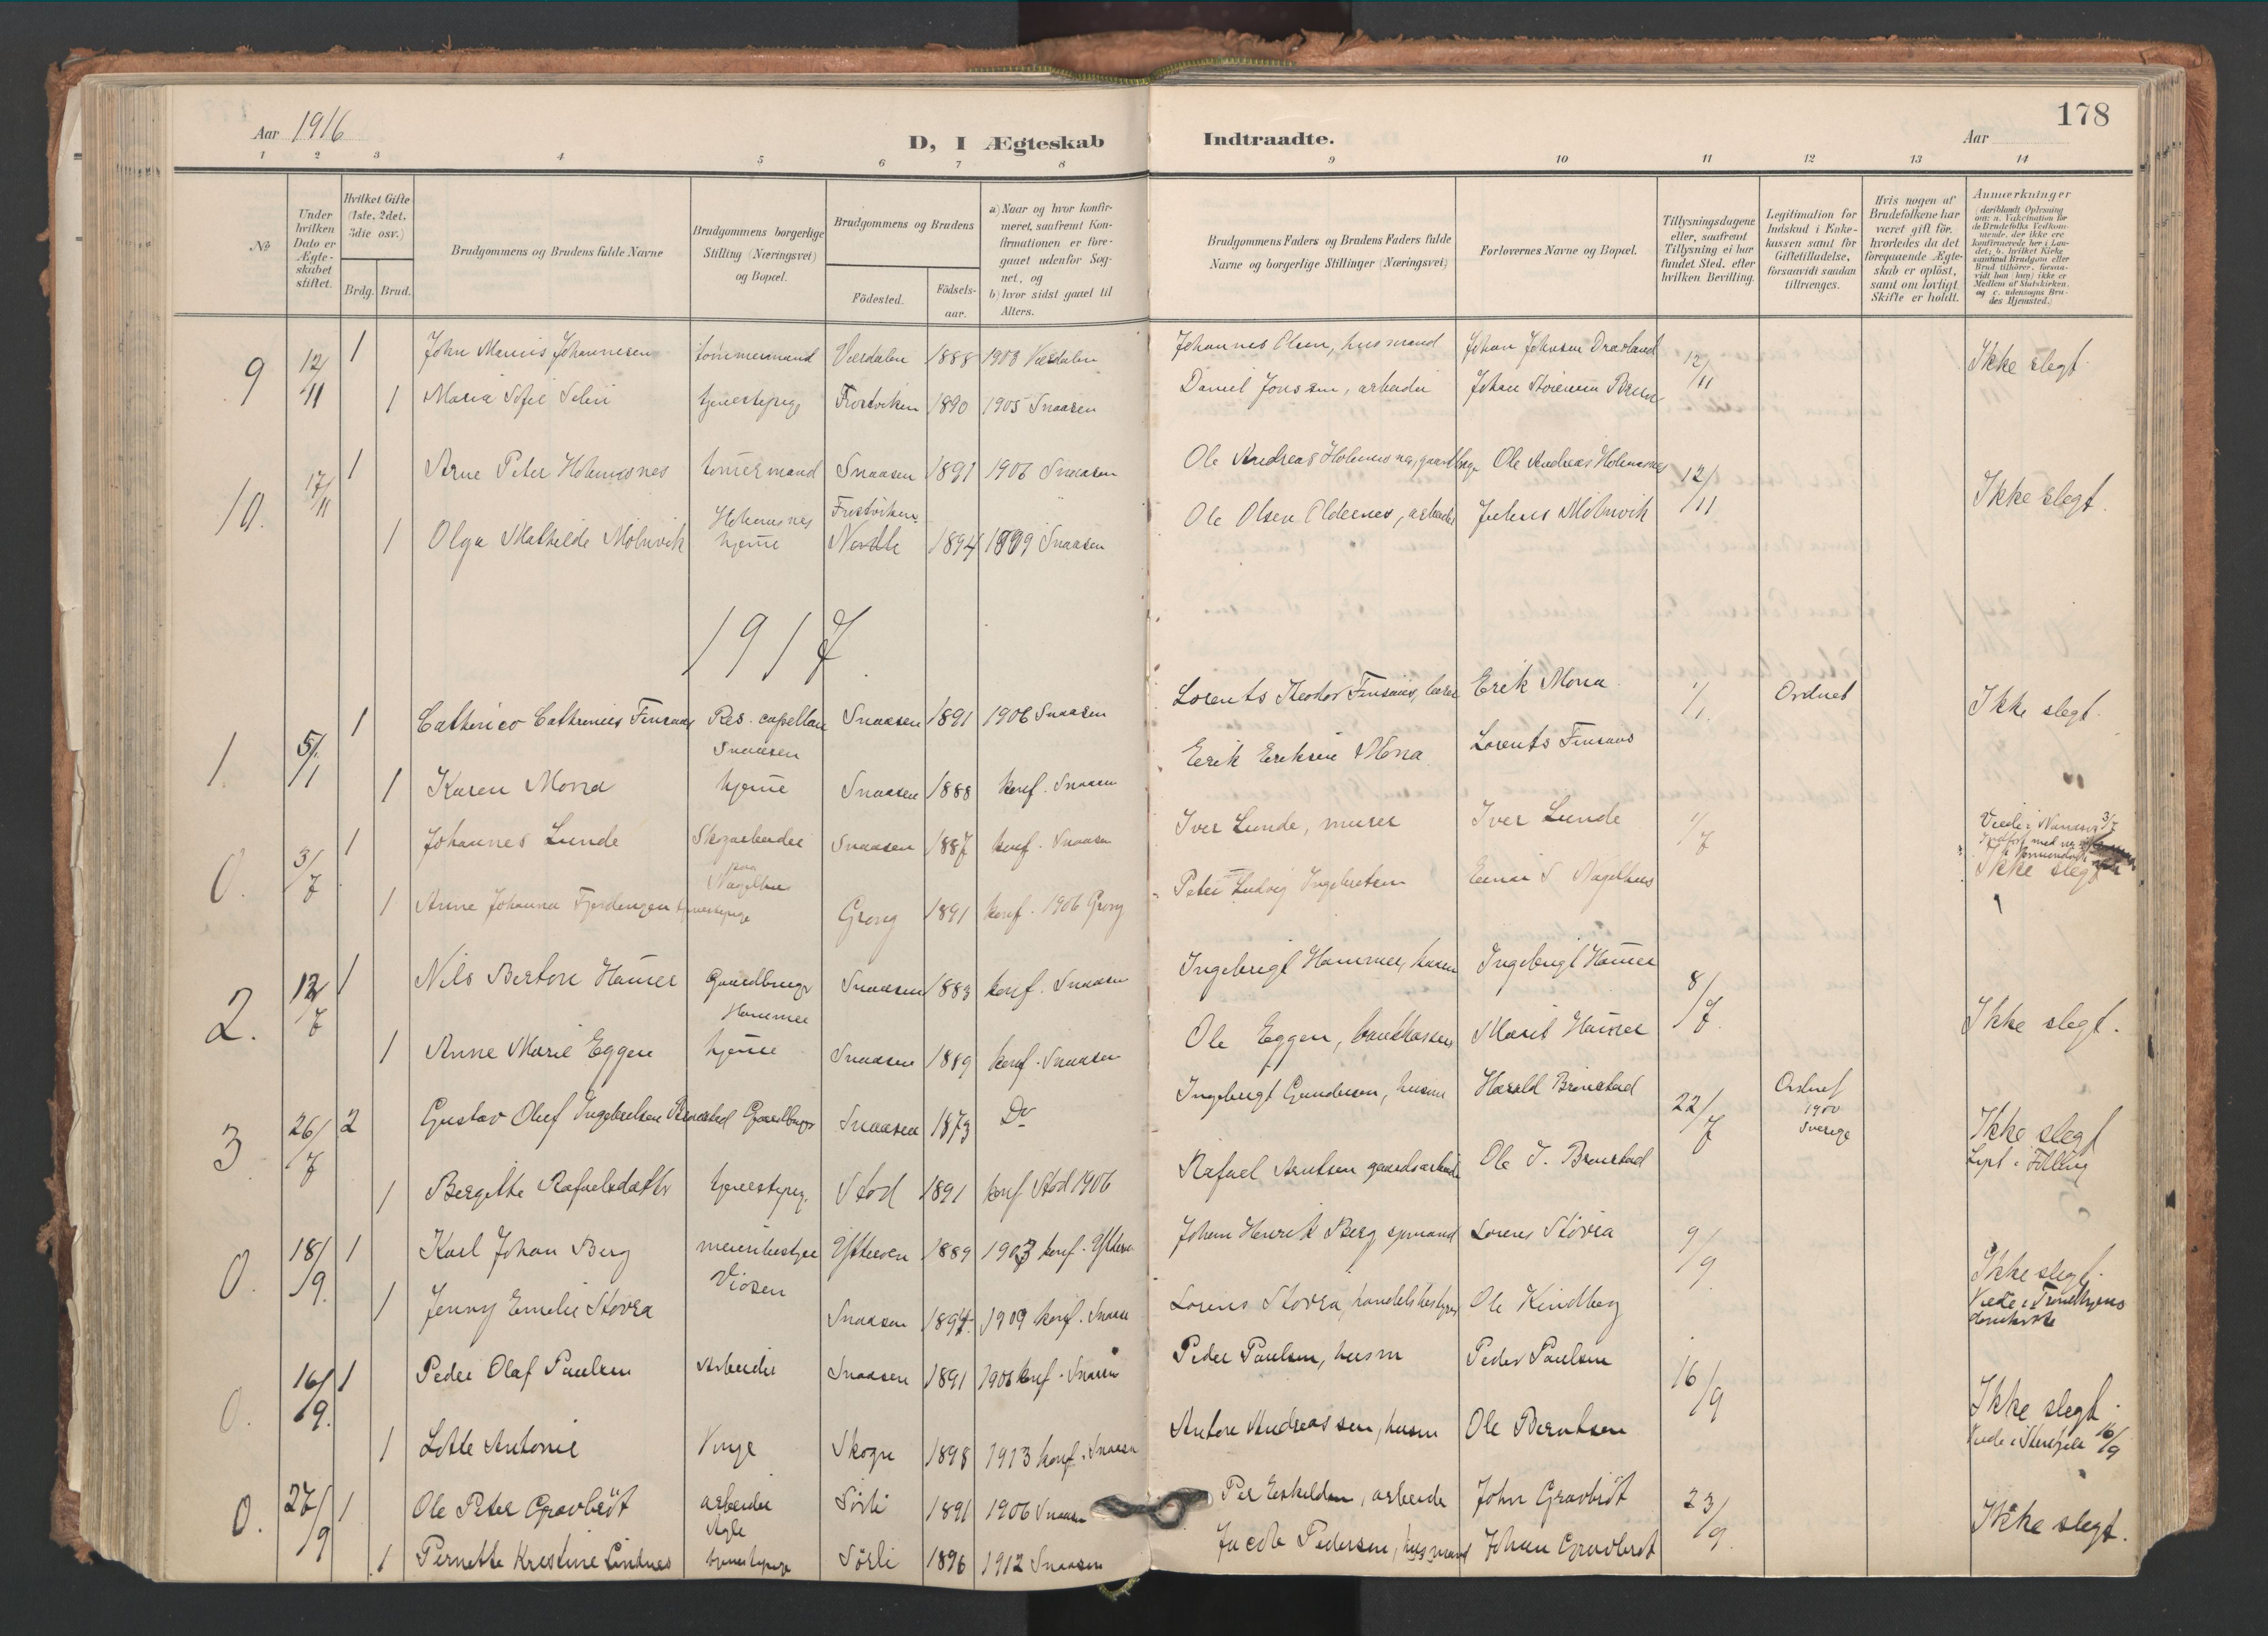 178
Aar 1916
D, I Ægteskab Indtraadte.
Aar
1 2 3 4 5 6 7 8 9 10 11 12 13 14
№
Under hvilken Dato er Ægteskabet stiftet.
Hvilket Gifte (1ste, 2det, 3die osv.)
Brdg. Brud.
Brudgommens og Brudens fulde Navne
Brudgommens borgerlige Stilling (Næringsvei) og Bopæl.
Brudgommens og Brudens
Födested.
Födsels-aar.
a) Naar og hvor konfirmeret, saafremt Konfirmationen er foregaaet udenfor Sognet, og
b) hvor sidst gaaet til Alters.
Brudgommens Faders og Brudens Faders fulde Navne og borgerlige Stillinger (Næringsvei)
Forlovernes Navne og Bopæl.
Tillysningsdagene eller, saafremt Tillysning ei har fundet Sted, efter hvilken Bevilling.
Legitimation for Indskud i Enkekassen samt for Giftetilladelse, forsaavidt saadan tiltrænges.
Hvis nogen af Brudefolkene har været gift för, hvorledes da det foregaaende Ægteskab er oplöst, samt om lovligt Skifte er holdt.
Anmærkninger
9 12/11 1 John Marius Johannesen tømmermand Værdalen 1888 1903 Værdalen Johannes Olsen, husmand 12/11 Ikke slegt.
1 Maria Sofie Selii tjenestepige Frostviken 1890 1905 Snaasen Daniel Jonssen, arbeider
10. 17/11 1 Arne Peter Holmesnes tømermand Snaasen 1891 1906 Snaasen Ole Andreas Holmesnes, gaardbrger Ole Andreas Holmesnes 12/11 Ikke slegt.
Holmesnes Frostviken
1 Olga Mathilde Mölnvik hjeme Nordli 1894 1909 Snaasen Ole Olsen Oldernes, arbeider Julius Mölnvik
1917.
1. 5/1 1 Cathrinus Finsaas Res. capellan Snaasen 1891 1906 Snaasen Lorents Teodor Finsaas, lærer Erik Mona 1/1. Ordnet Ikke slegt.
Snaasen
1 Karen Mona hjeme Snaasen 1888 konf. Snaasen Erik Eriksen Mona Lorents Finsaas
0. 3/7 1 Johannes Lunde Skogarbeider Snaasen 1887 konf. Snaasen Iver Lunde, murer Iver Lunde 1/7 Viede i Namsos 3/7
Nagelhus Ikke slegt
1 Anne Johanna Fjerdingen tjenestepige Grong 1891 konf. 1906 Grong Peter Ludvig Ingebretsen Einar S Nagelhus
2. 12/7 1 Nils Berton Hamer Gaardbruger Snaasen 1883 konf. Snaasen Ingebrigt Hammer, husm Ingebrigt Hamer 8/7 Ikke slegt.
Hammer
1 Anne Marie Eggen hjeme Snaasen 1889 konf. Snaasen Ole Eggen, bankkasserer Marit Hamer
3 26/7 2 Gustav Oluf Ingebretsen Brønstad Gaardbruger Snaasen 1873 Do Ingebrigt Gundersen, husm Harald Brønstad 22/7 Ordnet 1900 Sverige Ikke slegt
1 Bergitte Rafaelsdatter tjenestepige Stod 1891 konf. Stod 1906 Rafael Arntsen gaardsarbeider Ole J. Brønstad Lyst i Følling
0. 18/9. 1 Karl Johan Berg meieribestyrer Ytterøen 1889 1903 konf. Ytterøen Johan Henrik Berg, sjømand Lorens Støvra 9/9 Ikke slegt.
Viosen
1 Jenny Emelie Støvra Snaasen 1894. 1909 konf. Snaase Lorens Støvra handelsbestyrer Ole Kindberg Viede i Trondhjems domkirke
0. 16/9. 1 Peder Olaf Paulsen Arbeider Snaasen 1891 1906 konf. Snaasen Peder Paulsen, husm Peder Paulsen 16/9 Ikke slegt.
1 Lotte Antonie Vinje Skogn 1898 1913 konf. Snaasen Antore Andreassen, husm Ole Berntsen Viede i Stenkjær 16/9
0. 27/9 1 Ole Peter Gravbröt arbeider Sörli 1891 1906 Snaasen Per Eskeldsen, arbeider John Gravbröt 23/9. Ikke slegt.
Agle
1 Pernette Kristine Lindnes tjenestepige Sörli 1896 1912 Snaasen Jacob Pedersen, husmand Johan Gravbrot